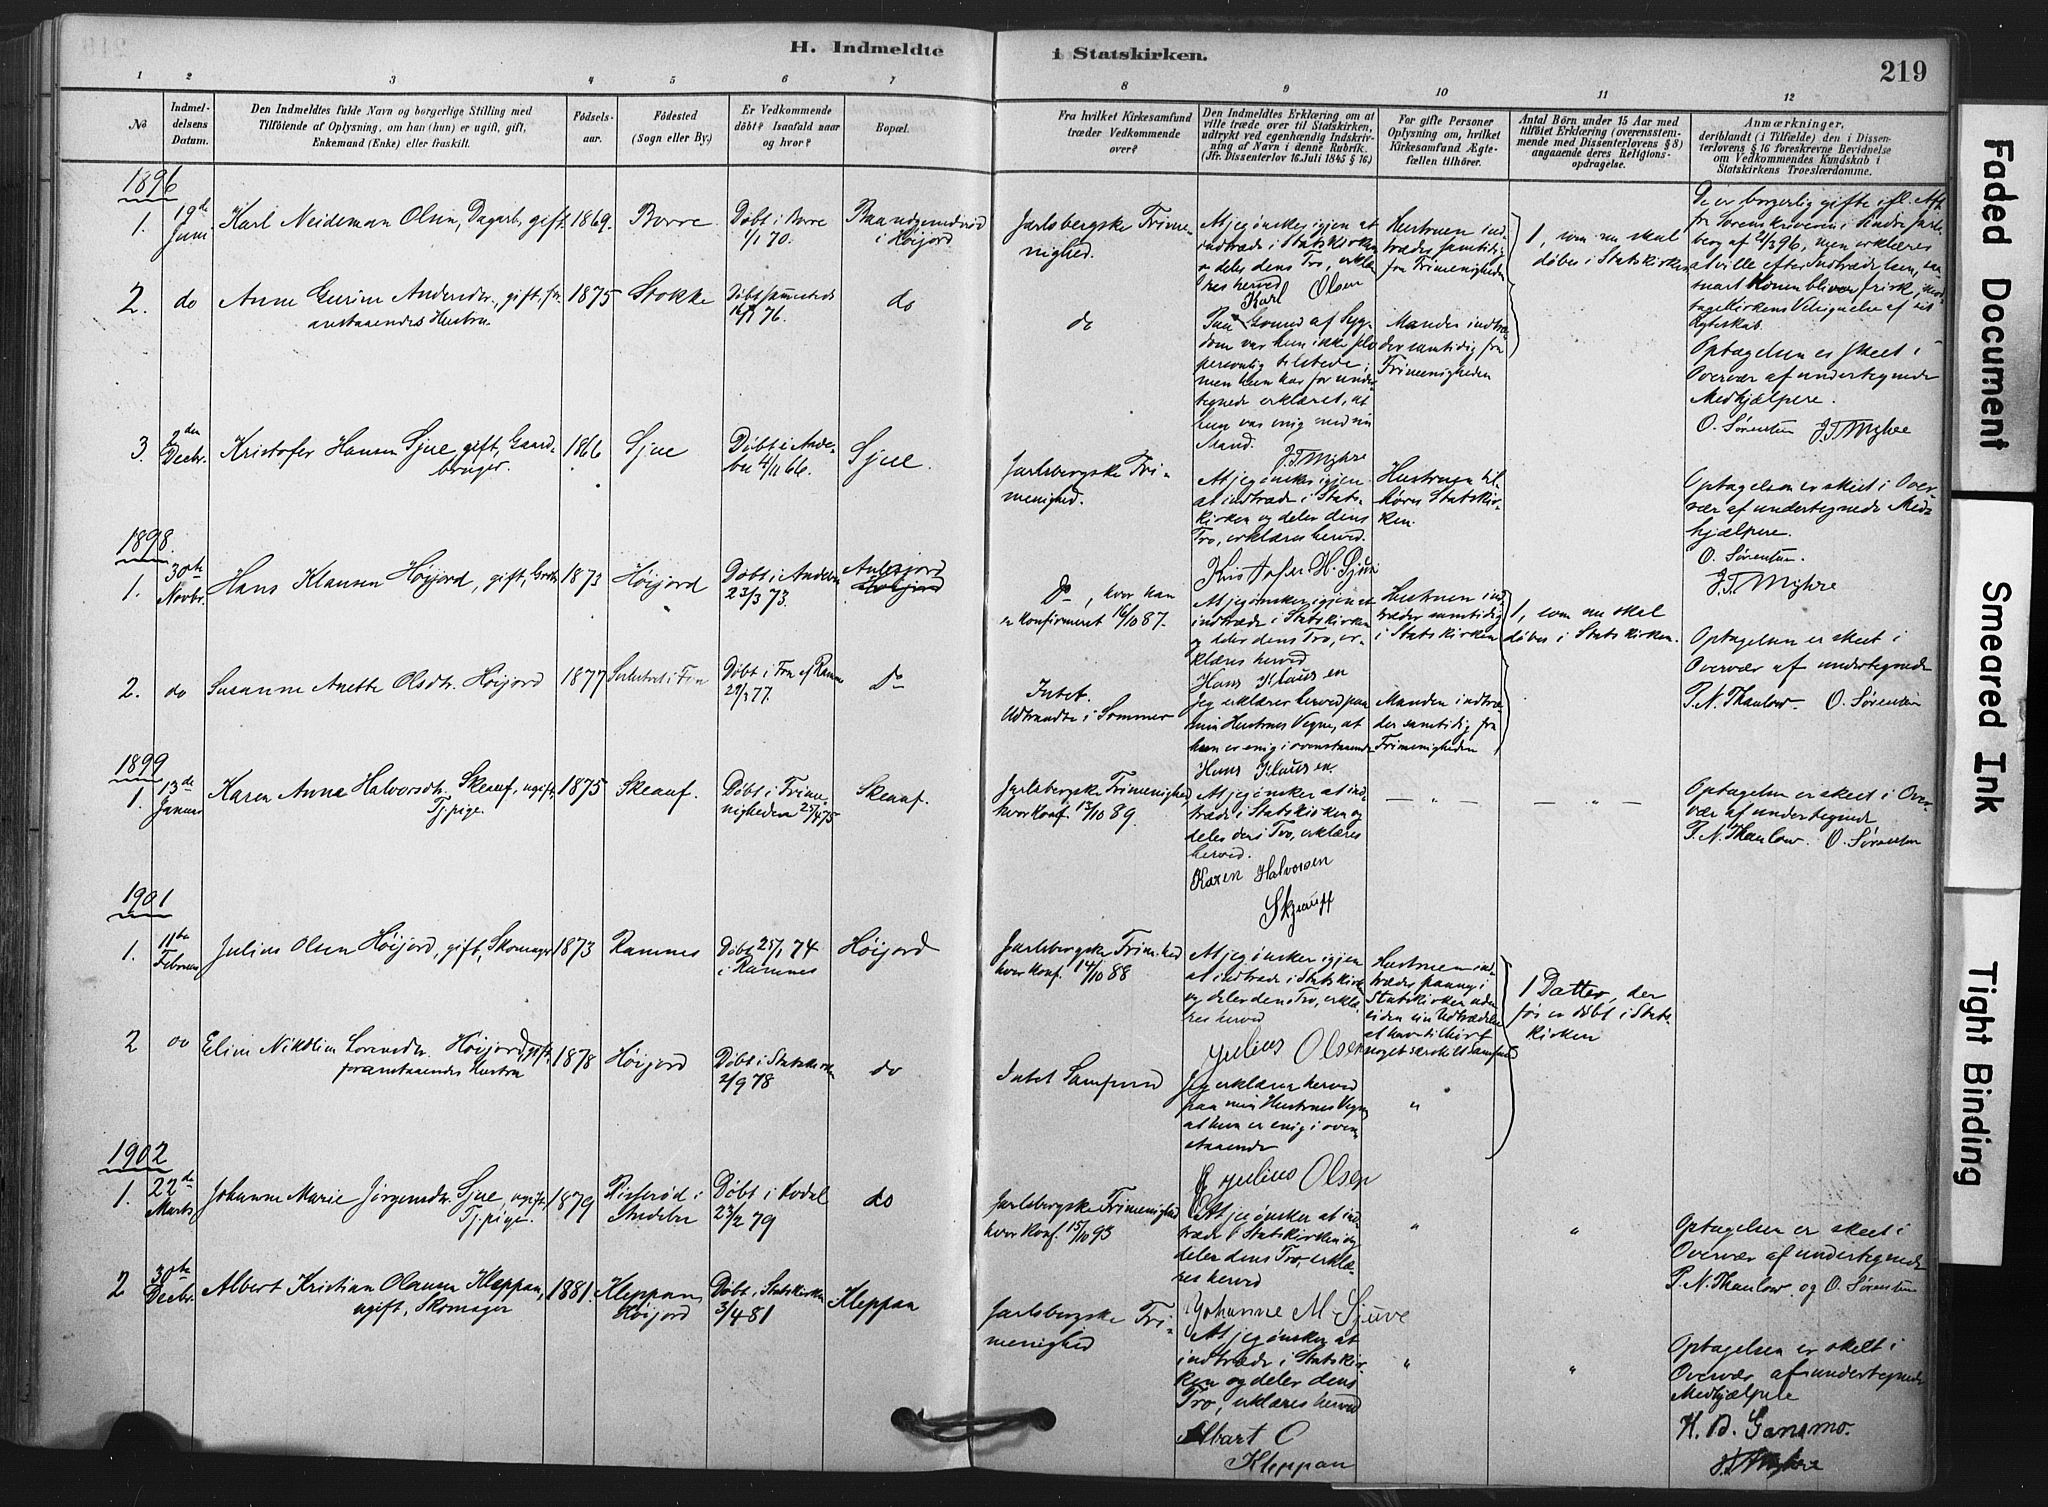 H. Indmeldte i Statskirken.
219
1 2 3 4 5 6 7 8 9 10 11 12
No
Indmel-
delsens
Datum.
Den Indmeldtes fulde Navn og borgerlige Stilling med
Tilföiende af Oplysning, om han (hun) er ugift, gift,
Enkemand (Enke) eller fraskilt.
Födsels-
aar.
Födested
(Sogn eller By.)
Er Vedkommende
döbt? Isaafald naar
og hvor?
Bopæl.
Fra hvilket Kirkesamfund
træder Vedkommende
over?
Den Indmeldtes Erklæring om at
ville træde over til Statskirken,
udtrykt ved egenhændig Indskriv-
ning af Navn i denne Rubrik.
(Jfr. Dissenterlov 16 Juli 1845 § 16)
For gifte Personer
Oplysning om, hvilket
Kirkesamfund Ægte-
fællen tilhörer.
Antal Börn under 15 Aar med
tilföiet Erklæring (overensstem-
mende med Dissenterlovens § 8)
angaaende deres Religions-
opdragelse.
Anmærkninger,
deriblandt (i Tilfælde) den i Dissen-
terlovens § 16 foreskrevne Bevidnelse
om Vedkommendes Kundskab i
Statskirkens Troeslærdomme.
1896
1.
19de
Juni
Karl Neideman Olsen, Dagarb., gift.
1869.
Borre.
Døbt i Borre
1/1 70.
i Høijord
Jarlsbergske Frime-
nighed.
At jeg ønsker igjen at
indtræde i Statskirken
o deler dens Tro, erklæ-
res herved
Karl Olsen
Hustruen ind-
træder samtidig
fra Frimenigheden
1, som nu skal
døbes i Statskirken
De er borgerlig gifte ifl. Att.
fra Sorenskriveren i
berg af 21/3 96, men erklæres
at ville efter Indtrædelsen, saa-
snart Konen bliver frisk, mod-
tage Kirkens Velsignelse af sit
Ægteskab.
Optagelsen er skeet i
Overvær af undertegnede
Medhjælpere.
O. Sørensen J. T. Myhre
2.
do
Anne Gurine Andersdtr., gift, for-
anstaaendes Hustru
1875
Stokke
Døbt sammesteds
76.
do
do
Paa Grund af Syg-
dom var hun ikke
personlig tilstede,
men hun har for under-
tegnede erklæret, at
hun var enig med sin
Mand.
J. T. Myhre
Manden indtræ-
der samtidig fra
Frimenigheden
3.
2den
Decbr.
Kristofer Hansen Sjue, gift, Gaard-
bruger.
1866
Sjue
Døbt i Ande-
bu 4/11 66.
Sjue.
Jarlsbergske Fri-
menighed.
At jeg ønsker igjen
at indtræde i Stats-
kirken og deler dens
Tro, erklæres herved.
Kristofer H. Sjue
Hustruen til-
hører Statskir-
ken.
Optagelsen er skeet i Over-
vær af undertegnede Med-
hjælpere.
O. Sørensen.
J. T. Myhre
1898.
1.
30te
Novbr.
Hans Klausen Høijord, gift, Grdbr
1873
Høijord
Døbt i Andebu
23/3 73.
Do, hvor han
er konfirmeret 16/10 87.
At jeg ønsker igjen at
indtræde i Statskirken
og deler dens Tro, er-
klæres herved
Hans Klausen
Hustruen ind-
træder samtidig
i Statskirken
1, som nu skal
døbes i Statskirken.
Optagelsen er skeet i
Overvær af undertegnede
P. N. Thanlow. O. Sørensen
2.
do
Susanne Anette Olsdtr. Høijord
1877
Døbt i Fon af Ramnes
77.
Do
Intet.
Udtraadte i Sommer
Jeg erklærer herved paa
min Hustrues Vegne, at
hun er enig i ovenstaaende
Hans Klausen.
Manden indtræ-
der samtidig fra
Frimenigheden
1899
1.
13de
Januar
Karen Anne Halvorsdtr. Skeauf, ugift,
Tj.pige.
1875
Skeauf.
Døbt i Frime-
nigheden 25/4 75
Skeauf.
Jarlsbergske Frimenighed
hvor konf. 13/10 89.
At jeg ønsker at ind-
træde i Statskirken og
deler dens Tro, erklæres
herved.
Karen Halvorsen
Skjauff
— „ —
— „ —
Optagelsen er skeet i Over-
vær af undertegnede
P. N. Thanlow. O. Sørensen
1901
1.
11te
Februar
Julius Olsen Høijord, gift, Skomager
1873
Ramnes
Døbt 25/1 74
i Ramnes
Høijord
Jarlsbergske Frim.hed
hvor konf. 14/10 88
At jeg ønsker igjen
at indtræde i Statskirken
og deler dens Tro, erklæ-
res herved
Julius Olsen
Hustruen ind-
træder paany i
Statskirken uden
siden sin Udtrædelse
at have tilhørt
noget særskilt Samfund
1 Datter, der
før er døbt i Stats-
kirken
2
do
Eline Nikoline Lorensdtr. Høijord, gift,
foranstaaendes Hustru
1878
Høijord
Døbt i Statskirken
2/9 78
do
Intet Samfund
Jeg erklærer herved
paa min Hustrues Vegne
at hun er enig i oven-
staaende
Julius Olsen
„
1902
1.
22de
Marts
Johanne Marie Jørgensdtr. Sjue, ugift,
Tj.pige.
1879
Risserød i
Andebu
Døbt i Kodal
23/2 79
do
Jarlsbergske Frimenighed
hvor konf. 15/10 93
At jeg ønsker at ind-
træde i Statskirken og
deler dens Tro, erklæ-
res herved
Johanne M. Sjuve
„
„
Optagelsen er skeet i
Overvær af undertegnede
P. N. Thanlow og O. Sørensen
2
30te
Decbr.
Albert Kristian Olausen Kleppan,
ugift, Skomager
1881.
Kleppan,
Høijord
Døbt i Statskirken
3/4 81
Kleppan
Jarlsbergske Fri-
menighed
At jeg ønsker at
indtræde i Statskir-
ken og deler dens
Tro, erklæres herved
Albart O
Kleppan
„
„
Optagelsen er skeet i
Overvær af undertegnede
Medhjælpere
Faded Document
Smeared Ink
Tight Binding